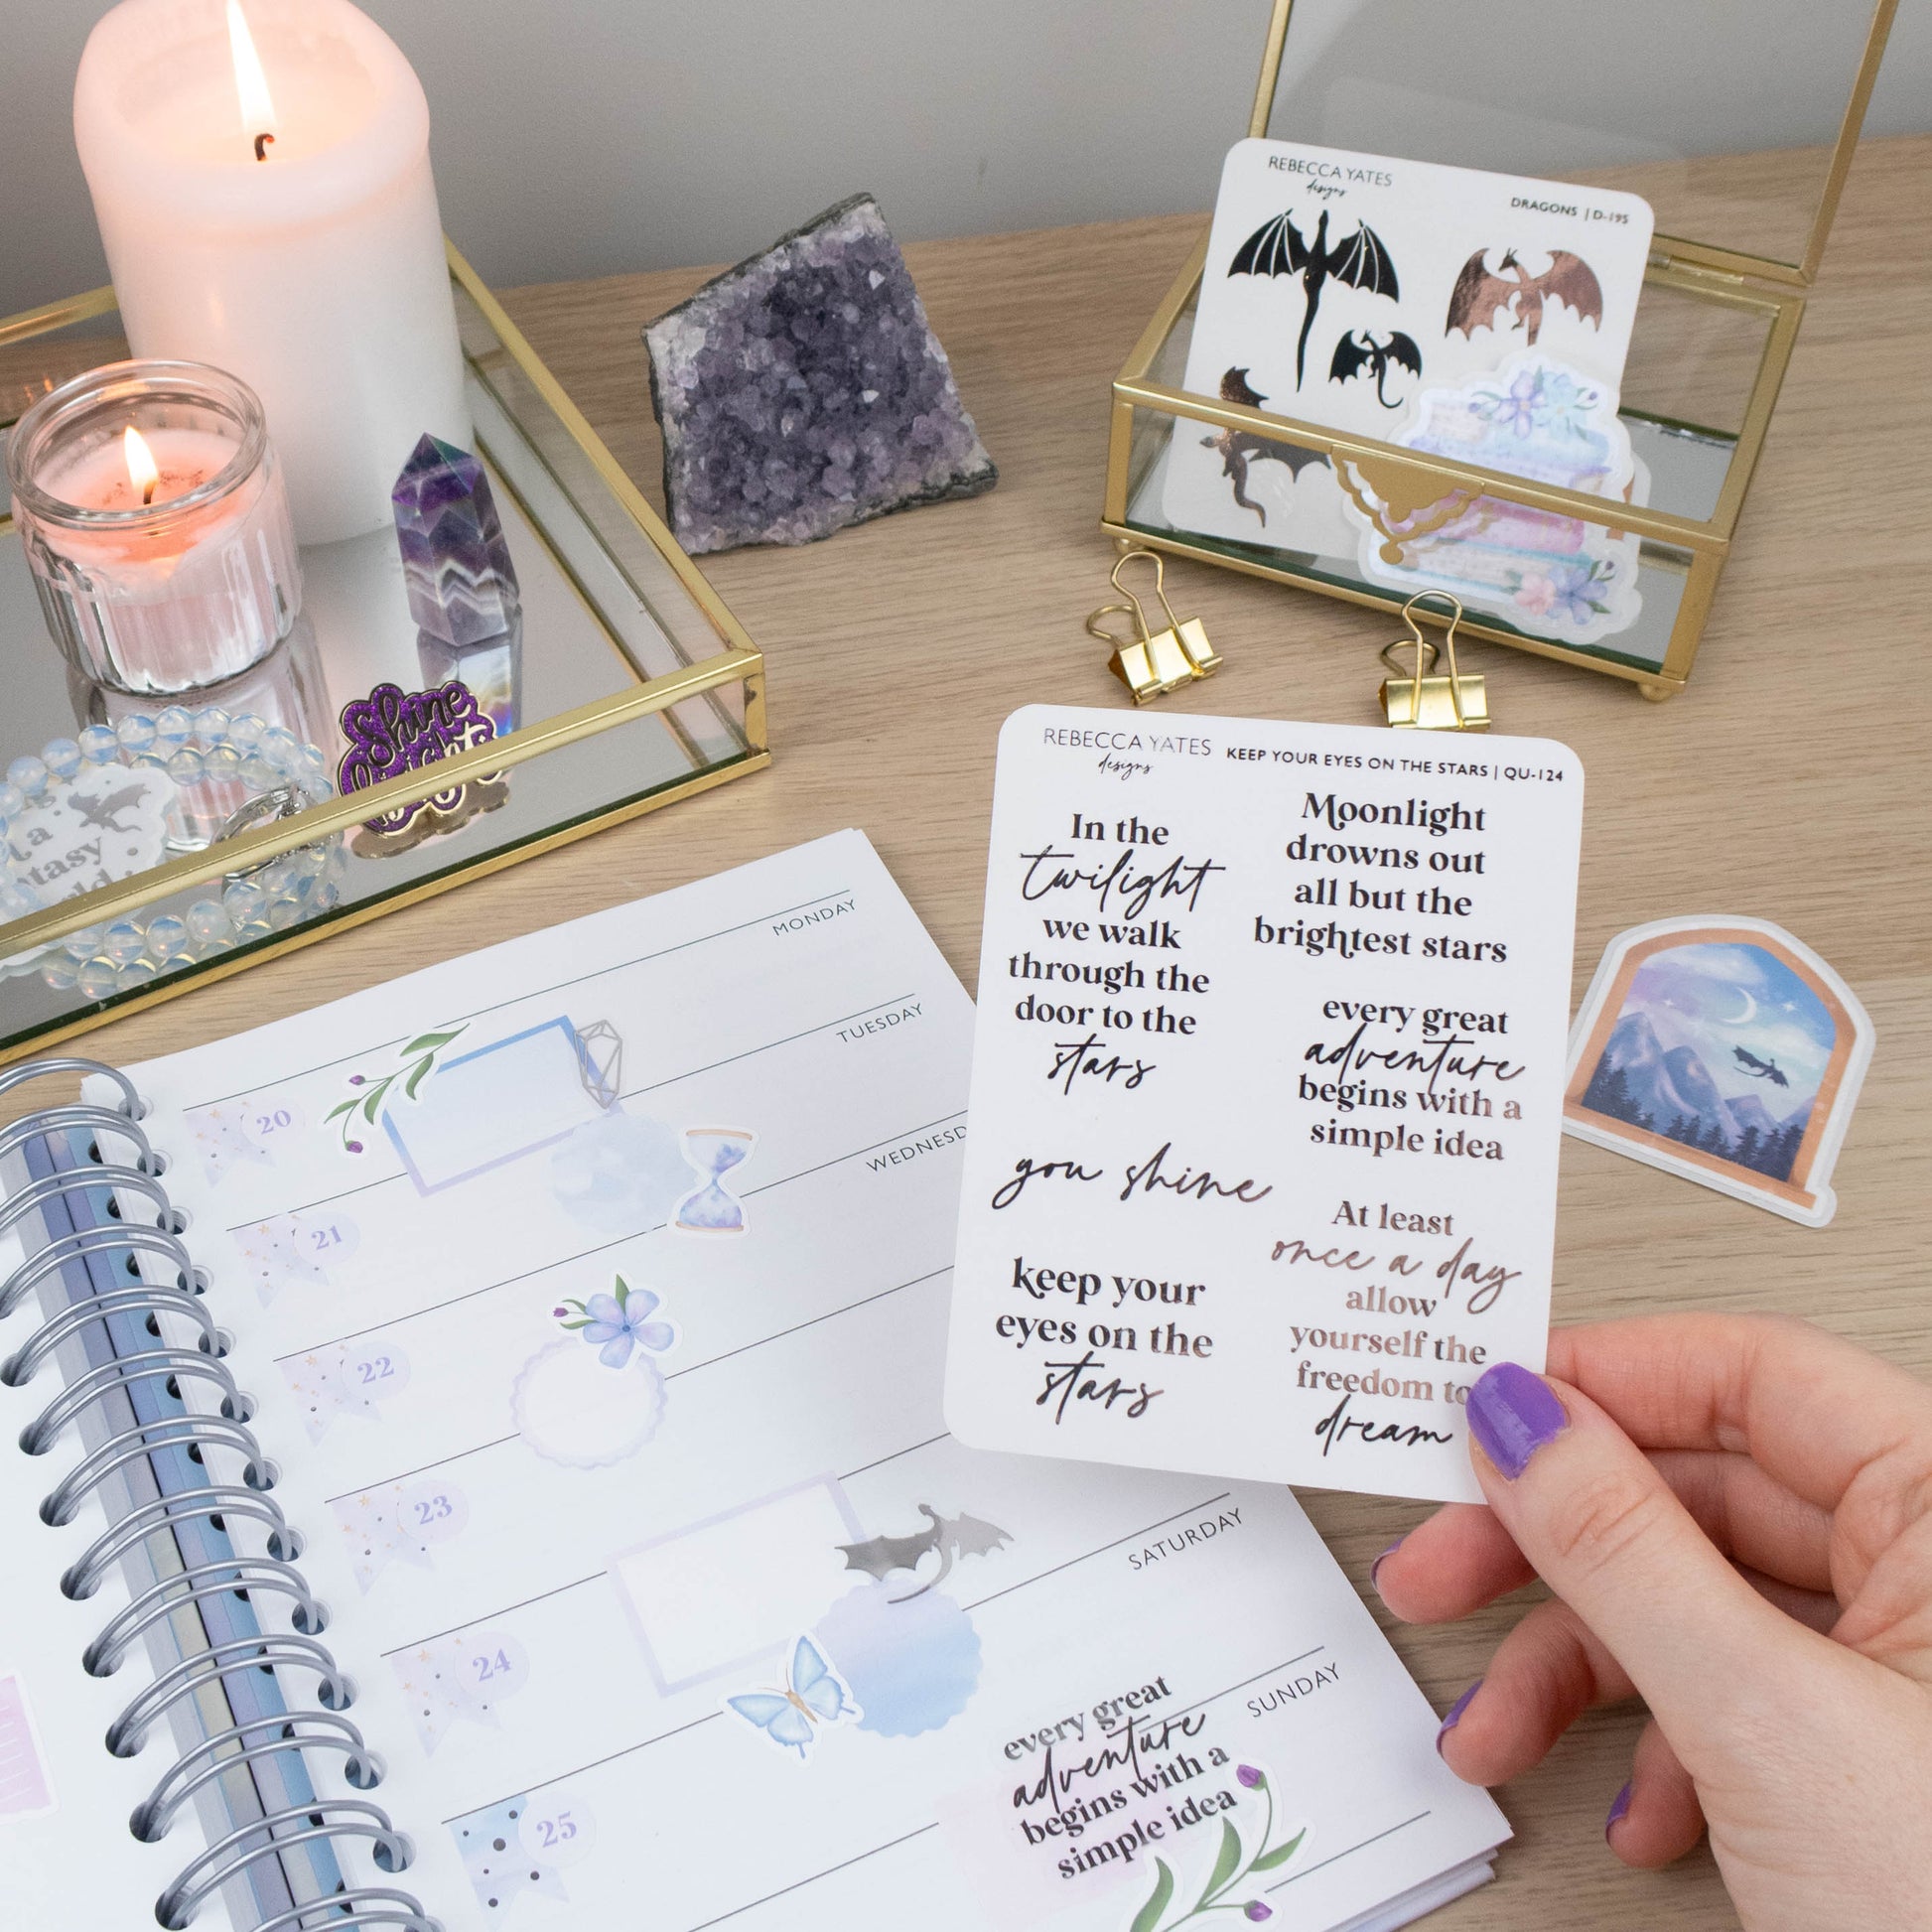 REBECCA YATES
designs
DRAGONS | D-195
Shine
bright
a
ntasy
REBECCA YATES
designs
KEEP YOUR EYES ON THE STARS | QU-124
In the
twilight
we walk
through the
door to the
stars
you shine
keep your
eyes on the
stars
Moonlight
drowns out
all but the
brightest stars
every great
adventure
begins with a
simple idea
At least
once a day
allow
yourself the
freedom to
dream
MONDAY
20
TUESDAY
21
WEDNESD
22
23
24
SATURDAY
25
SUNDAY
every great
adventure
begins with a
simple idea